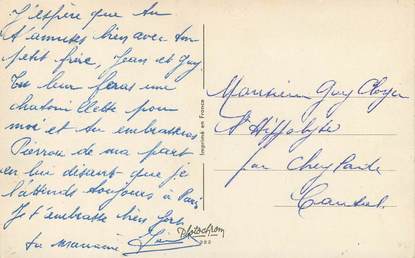 J'espère que tu
t'amuses bien avec ton
petit frère, Jean et Guy
Tu leur feras une
chatouillette pour
moi et tu embrasseras
Pierrou de ma part
en lui disant que je
l'attends toujours à Paris
Je t'embrasse bien fort
ta marraine
Imprimé en France
Photochrom
Monsieur Guy
St Hippolyte
par Cheylade
Cantal.